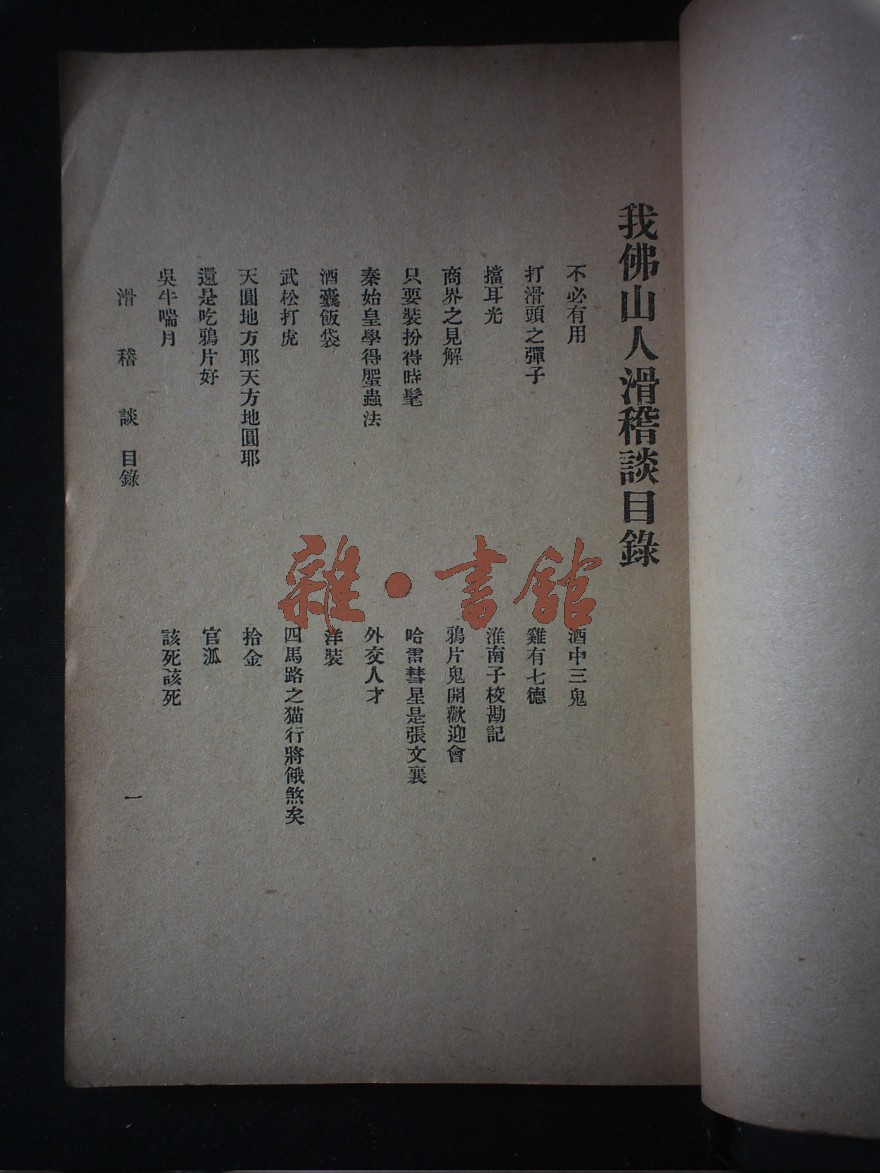 我佛山人滑稽談目錄
不必有用
酒中三鬼
打滑頭之彈子
雞有七德
擋耳光
淮南子校勘記
商界之見解
鴉片鬼開歡迎會
只要裝扮得時髦
哈雷彗星是張文襄
秦始皇學得蜰蟲法
外交人才
酒囊飯袋
洋裝
武松打虎
四馬路之猫行將餓煞矣
天圓地方耶天方地圓耶
拾金
還是吃鴉片好
官派
吳牛喘月
該死該死
滑稽談 目錄
一
雜·書館